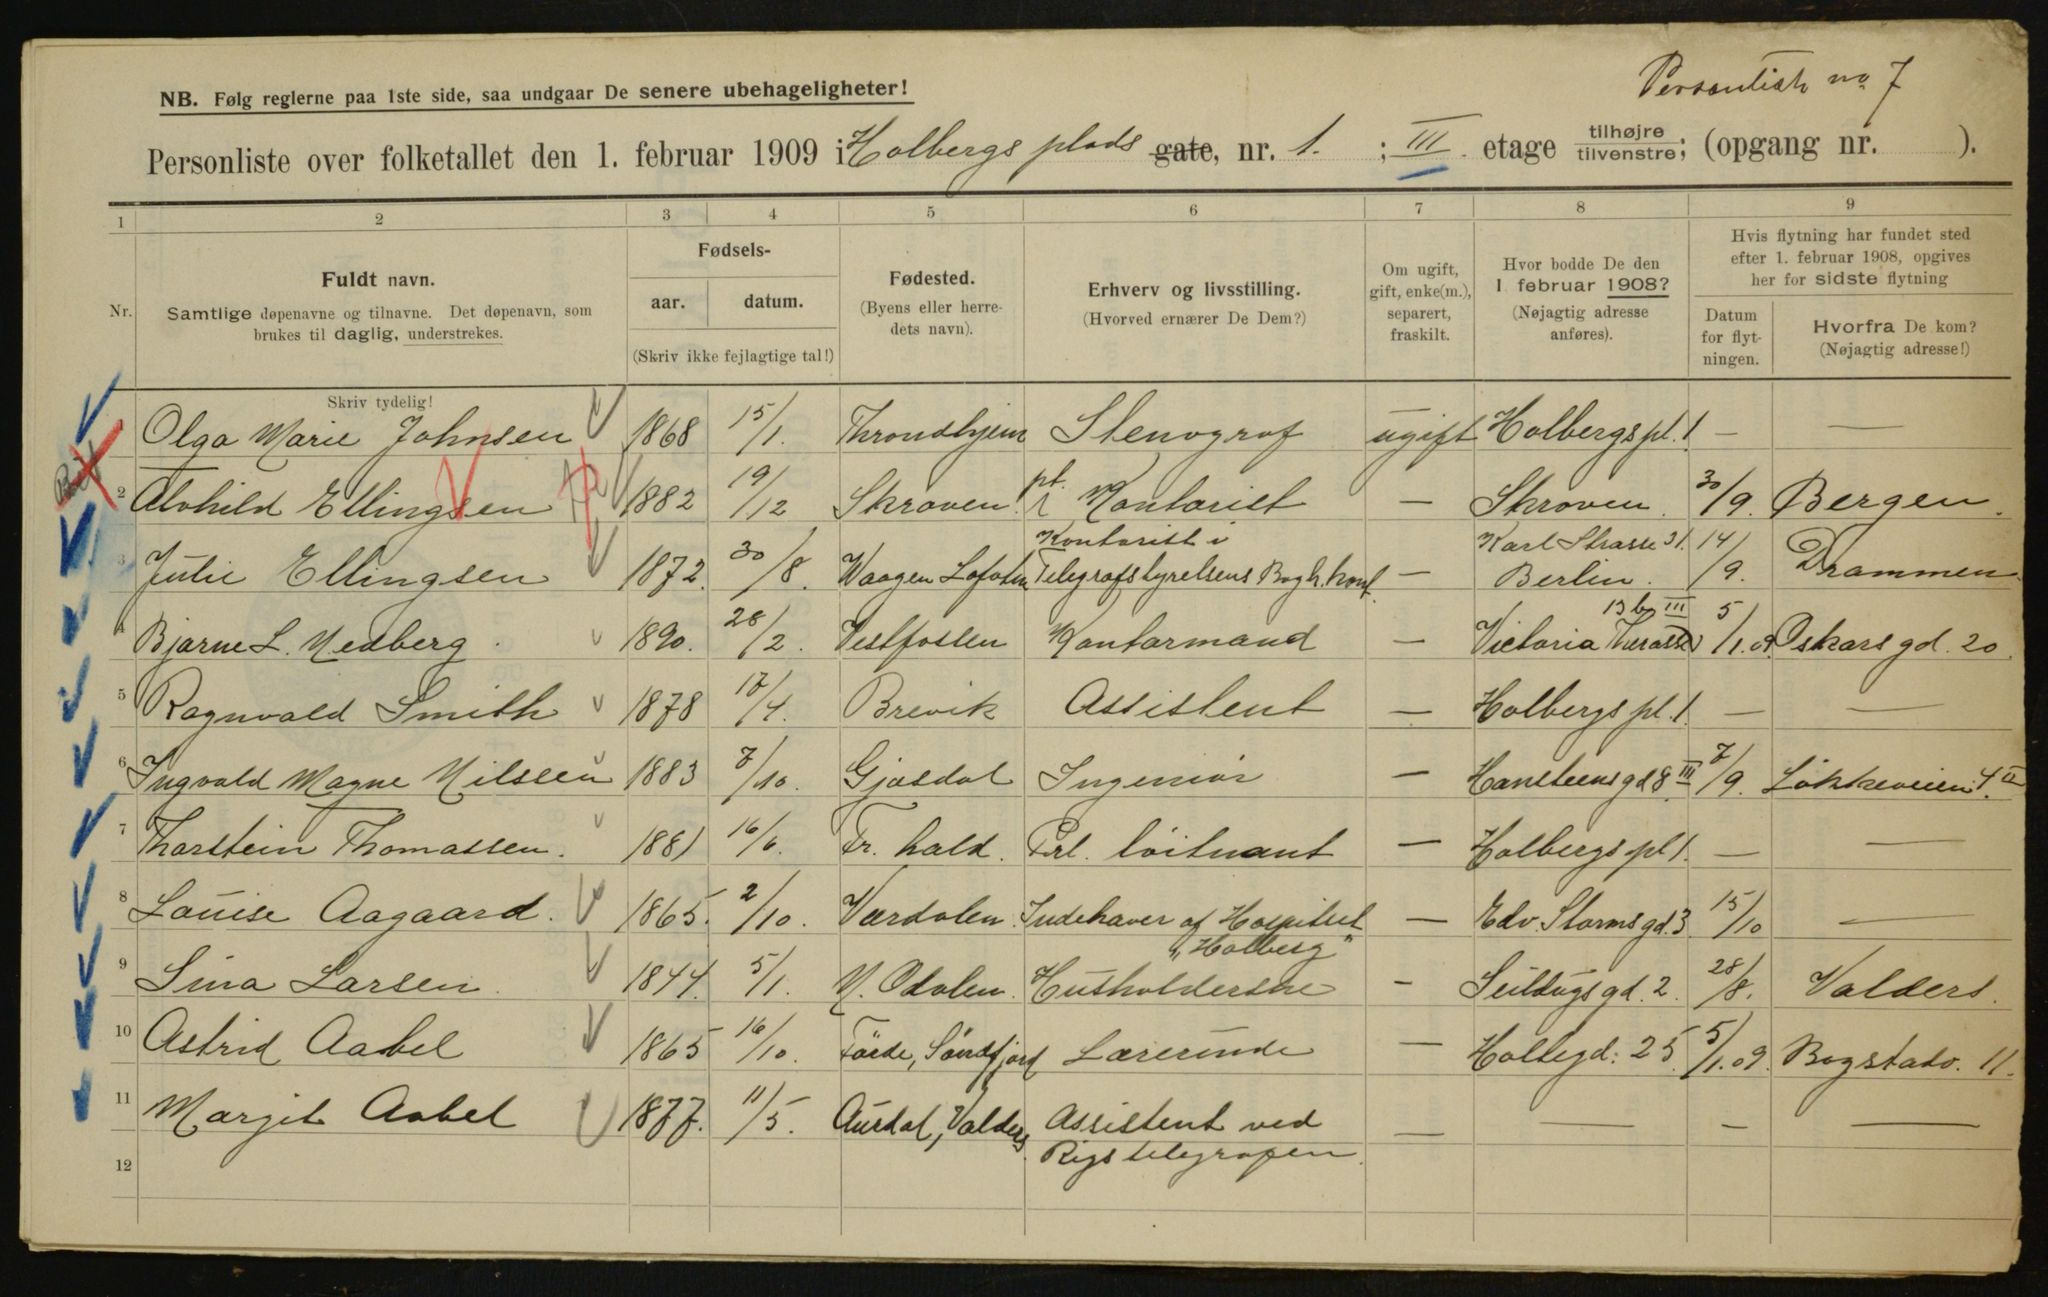 Personliste no 7
NB. Følg reglerne paa 1ste side, saa undgaar De senere ubehageligheter!
Personliste over folketallet den 1. februar 1909 i Holbergs plads gate, nr. 1. ; III. etage tilhøjre tilvenstre; (opgang nr. ).
1 2 3 4 5 6 7 8 9
Nr.
Fuldt navn.
Samtlige døpenavne og tilnavne. Det døpenavn, som
brukes til daglig, understrekes.
Fødsels-
aar. datum.
(Skriv ikke fejlagtige tal!)
Fødested.
(Byens eller herre-
dets navn).
Erhverv og livsstilling.
(Hvorved ernærer De Dem?)
Om ugift,
gift, enke(m.),
separert,
fraskilt.
Hvor bodde De den
1 februar 1908?
(Nøjagtig adresse
anføres).
Hvis flytning har fundet sted
efter 1. februar 1908, opgives
her for sidste flytning
Datum
for flyt-
ningen.
Hvorfra De kom?
(Nøjagtig adresse!)
Skriv tydelig!
Olga Marie Johnsen 1868 15/1. Throndhjem Stenograf ugift Holbergs pl. 1 — —
2 Alvhild Ellingsen 1882 19/12 Skroven pt. Kontorist — Skroven. 30/9. Bergen.
3 Julie Ellingsen 1872. 30/8. Waagen Lofoten Kontorist i Telegrafstyrelsens Bogh. kont. — Karl Strasse 31. Berlin. 14/9. Drammen
4 Bjarne L. Nedberg 1890. 28/2. Vestfossen Kontormand — Victoria Therasse 13 b III 5/1.09. Oskars gd. 20.
5 Ragnvald Smith 1878 17/4. Brevik Assistent — Holbergs pl. 1. — —
6 Ingvald Magne Nilsen 1883 7/10. Gjæsdal Ingeniør — Hansteensgd 8 III 7/9. Løkkeveien 4. II
7 Thorstein Thomassen. 1881 16/6. Fr. hald. Prl. løitnant — Holbergs pl 1. — —
8 Louise Aagaard. 1865. 2/10. Værdalen. Indehaver af Hospitset „Holberg" — Edv. Stormsgd. 3 15/10 —
9 Sina Larsen. 1844. 5/1. N. Odalen. Husholderske — Seildugsgd. 2. 28/8. Valders.
10 Astrid Aabel 1865 16/10. Førde, Søndfjord Lærerinde — Holtegd: 25. 5/1.09. Bogstadv. 11.
11 Margit Aabel 1877. 11/5. Aurdal, Valders. Assistent ved Rigstelegrafen. — — — —
12